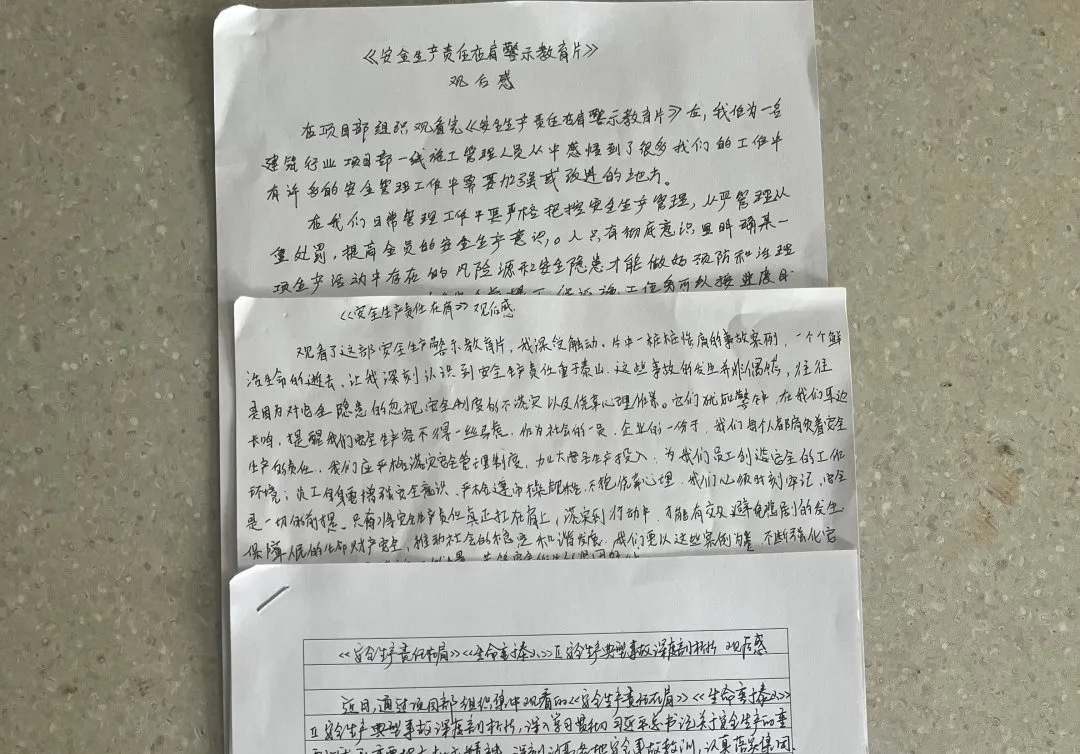 《安全生产责任在肩警示教育片》
观后感
在项目部组织观看完《安全生产责任在肩警示教育片》在，我作为一名
建筑行业项目部一线施工管理人员从中感悟到了很多我们的工作中
有许多的安全管理工作中需要加强或改进的地方。
在我们日常管理工作中要严格把控安全生产管理，从严管理从
重处罚，提高全员的安全生产意识。人只有彻底意识里明确某一
项生产活动中存在的风险源和安全隐患才能做好预防和治理
《安全生产责任在肩》观后感
观看了这部安全生产警示教育片，我深受触动。片中一桩桩惨痛的事故案例，一个个鲜
活生命的逝去，让我深刻认识到安全生产责任重于泰山。这些事故的发生并非偶然，往往
是因为对安全隐患的忽视、安全制度的不落实以及侥幸心理作祟。它们犹如警钟，在我们耳边
长鸣，提醒我们安全生产容不得一丝马虎。作为社会的一员，企业的一份子，我们每个人都肩负着安全
生产的责任。我们应严格落实安全管理制度，加大安全生产投入，为我们员工创造安全的工作
环境；员工自身要增强安全意识，严格遵守操作规程，不抱侥幸心理。我们必须时刻牢记，安全
是一切的前提。只有将安全生产责任真正扛在肩上，落实到行动中，才能有效避免悲剧的发生，
保障人民的生命财产安全，推动社会的稳定和谐发展。我们要以这些案例为鉴，不断强化安
《安全生产责任在肩》《生命重于泰山》Ⅱ安全生产典型事故深度剖析片 观后感
近日，通过项目部组织集中观看的《安全生产责任在肩》《生命重于泰山》
Ⅱ安全生产典型事故深度剖析片，深入学习贯彻习近平总书记关于安全生产的重